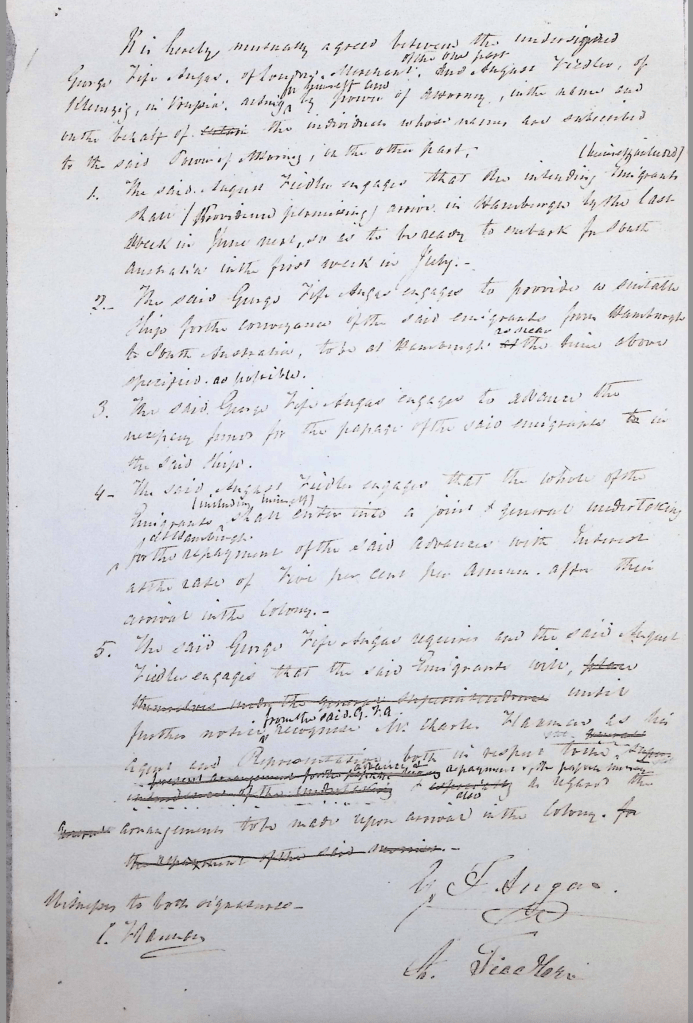 It is hereby mutually agreed between the undersigned
of the one part
George Fife Angas, of London, Merchant, and August Fiedler, of
for himself and
Klemzig, in Prussia, acting by power of Attorney, in the name and
on the behalf of the individuals whose names are subscribed
to the said Power of Attorney, on the other part;
(himself included)
1. The said August Fiedler engages that the intending Emigrants
shall (Providence permitting) arrive in Hamburgh by the last
week in June next, so as to be ready to embark for South
Australia in the first week in July.-
2- The said George Fife Angas engages to provide a suitable
Ship for the conveyance of the said emigrants from Hamburgh
as near
to South Australia, to be at Hamburgh at the time above
specified as possible.
3. The said George Fife Angas engages to advance the
necessary funds for the passage of the said emigrants to in
the said Ship.
4- The said August Fiedler engages that the whole of the
(including himself)
Emigrants shall enter into a joint & general undertaking
at Hamburgh
for the repayment of the said advances with Interest
at the rate of Five per cent per Annum after their
arrival in the Colony.-
5. The said George Fife Angas requires and the said August
Fiedler engages that the said Emigrants will, place
themselves under the general superintendence until
from the said G. F. A.
further notice recognise Mr Charles Flaxman as his
Agent and Representative both in respect
advances &
repayment of the passage money
& especially as regards the
also
arrangements to be made upon arrival in the Colony. for
the repayment of the said monies.-
G. F. Angas.
Witness to both signatures-
C. Flaxman
A. Fiedler